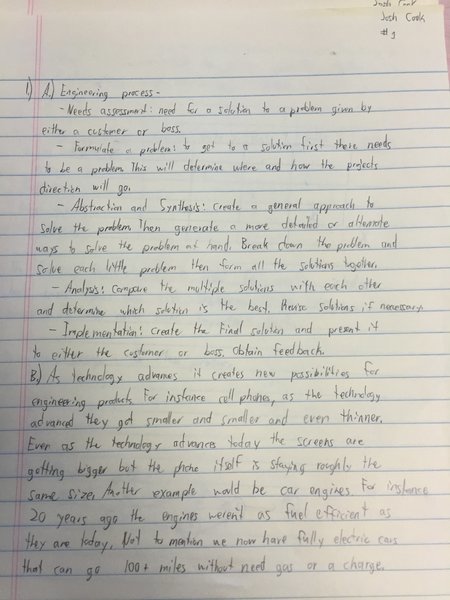 Josh Cook
Josh Cook
#1
1) A.) Engineering process-
- Needs assessment: need for a solution to a problem given by
either a customer or boss.
- Formulate a problem: to get to a solution first there needs
to be a problem. This will determine where and how the projects
direction will go.
- Abstraction and Synthesis: create a general approach to
solve the problem. Then generate a more detailed or alternate
ways to solve the problem at hand. Break down the problem and
solve each little problem then form all the solutions together.
- Analysis: compare the multiple solutions with each other
and determine which solution is the best. Revise solutions if necessary.
- Implementation: create the final solution and present it
to either the customer or boss. Obtain feedback.
B.) As technology advances it creates new possibilities for
engineering products. For instance cell phones, as the technology
advanced they got smaller and smaller and even thinner.
Even as the technology advances today the screens are
getting bigger but the phone itself is staying roughly the
same size. Another example would be car engines. For instance
20 years ago the engines weren't as fuel efficient as
they are today. Not to mention we now have fully electric cars
that can go 100+ miles without need gas or a charge.